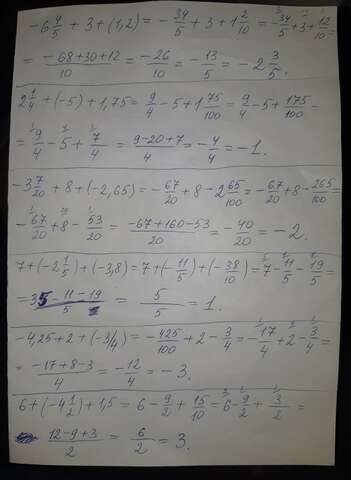 -6 4/5 + 3 + (1,2) = -34/5 + 3 + 1 2/10 = -34/5 + 3 + 12/10 =
= (-68+30+12)/10 = -26/10 = -13/5 = -2 3/5.
2 1/4 + (-5) + 1,75 = 9/4 - 5 + 1 75/100 = 9/4 - 5 + 175/100 =
= 9/4 - 5 + 7/4 = (9-20+7)/4 = -4/4 = -1.
-3 7/20 + 8 + (-2,65) = -67/20 + 8 - 2 65/100 = -67/20 + 8 - 265/100 =
-67/20 + 8 - 53/20 = (-67+160-53)/20 = -40/20 = -2.
7 + (-2 1/5) + (-3,8) = 7 + (-11/5) + (-38/10) = 7 - 11/5 - 19/5 =
= (35-11-19)/5 = 5/5 = 1.
-4,25 + 2 + (-3/4) = -425/100 + 2 - 3/4 = -17/4 + 2 - 3/4 =
= (-17+8-3)/4 = -12/4 = -3.
6 + (-4 1/2) + 1,5 = 6 - 9/2 + 15/10 = 6 - 9/2 + 3/2 =
(12-9+3)/2 = 6/2 = 3.